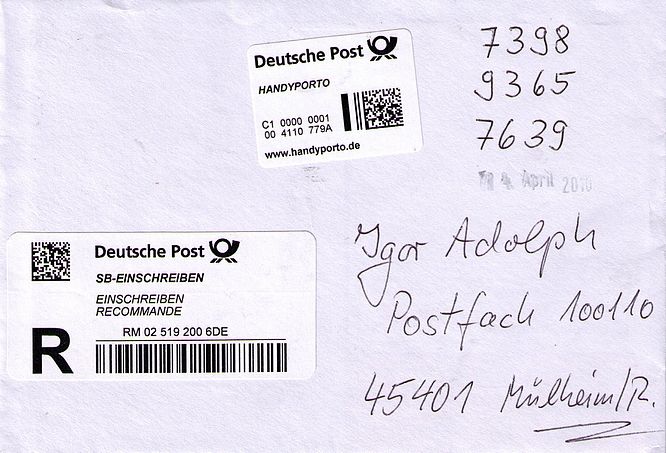 Deutsche Post
HANDYPORTO
C1 0000 0001
00 4110 779A
www.handyporto.de
7398
9365
7639
4. April 2010
Deutsche Post
SB-EINSCHREIBEN
EINSCHREIBEN
RECOMMANDE
R
RM 02 519 200 6DE
Igor Adolph
Postfach 100110
45401 Mülheim/R.